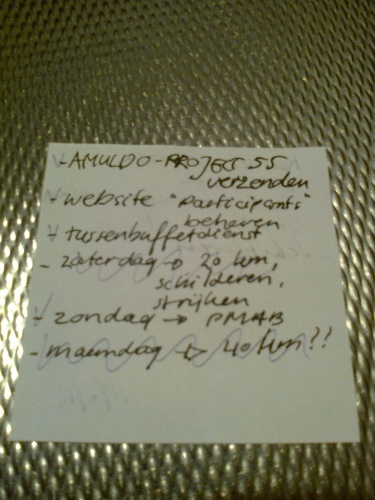 - AMULDO - PROJECT SS
verzenden
- website "Participants"
beheren
- tussenbuffetdienst
- zaterdag → 20 km,
schilderen,
strijken
- zondag → PMAB
- maandag → 40 km??